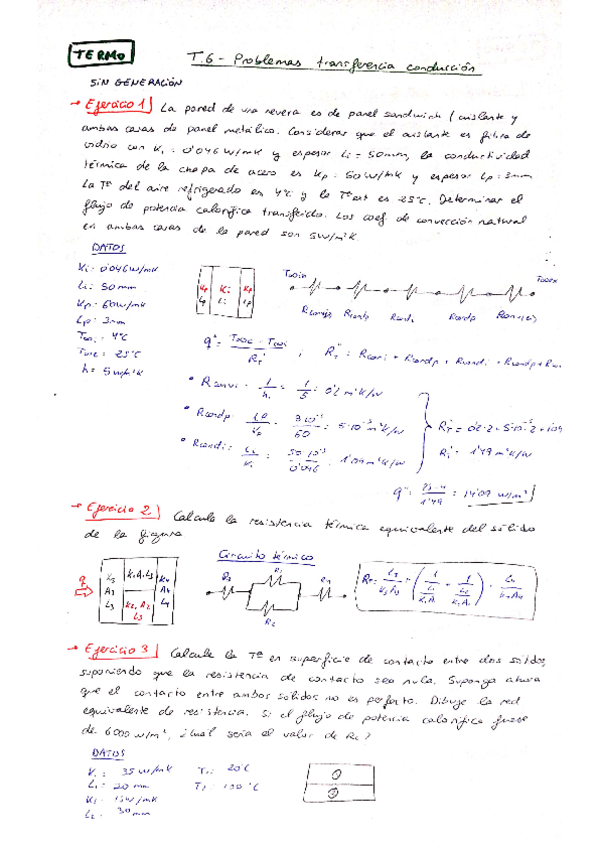 TERMO
T.6 - Problemas transferencia conducción
SIN GENERACIÓN
→ Ejercicio 1 La pared de una nevera es de panel sandwich (aislante y
ambas caras de panel metálico. Considerar que el aislante es fibra de
vidrio con Ki = 0'046 W/mK y espesor Li = 50mm, la conductividad
térmica de la chapa de acero es Kp = 60 W/mK y espesor Lp = 3mm
La Tª del aire refrigerado es 4ºC y la Tª ext es 25ºC. Determinar el
flujo de potencia calorífica transferido. Los coef. de convección natural
en ambas caras de la pared son 5W/m²K.
DATOS
Ki = 0'046 W/mK
Li = 50 mm
Kp = 60W/mK
Lp = 3mm
T∞i = 4ºC
T∞e = 25ºC
h = 5 W/m²K
Kp Ki Kp
Lp Li Lp
T∞in T∞ex
Rcondp Rcondi Rcondp
q" = (T∞e - T∞i) / RT" ; RT" = Rconvi + Rcondp + Rcondi + Rcondp + R
• Rconvi = 1/hi = 1/5 = 0'2 m²K/W
• Rcondp = Lp/Kp = 3·10⁻³/60 = 5·10⁻⁵ m²K/W
• Rcondi = Li/Ki = 50·10⁻³/0'046 = 1'09 m²K/W
RT" = 0'2·2 + 5·10⁻⁵·2 + 1'09
RT" = 1'49 m²K/W
q" = (25-4)/1'49 = 14'09 W/m²
→ Ejercicio 2 Calcule la resistencia térmica equivalente del sólido
de la figura
Circuito térmico
q
K3 A3 L3
K1, A1, L3
K2, A2 L3
K4 A4 L4
R3 R1 R2 R4
→ Ejercicio 3 Calcule la Tª en superficie de contacto entre dos sólidos,
suponiendo que la resistencia de contacto sea nula. Suponga ahora
que el contacto entre ambos sólidos no es perfecto. Dibuje la red
equivalente de resistencia. Si el flujo de potencia calorífica fuese
de 6000 W/m², ¿cuál sería el valor de Rc?
DATOS
K1 = 35 W/mK
L1 = 20 mm
K2 = 15W/mK
L2 = 30mm
T1 = 20ºC
T2 = 100ºC
1
2